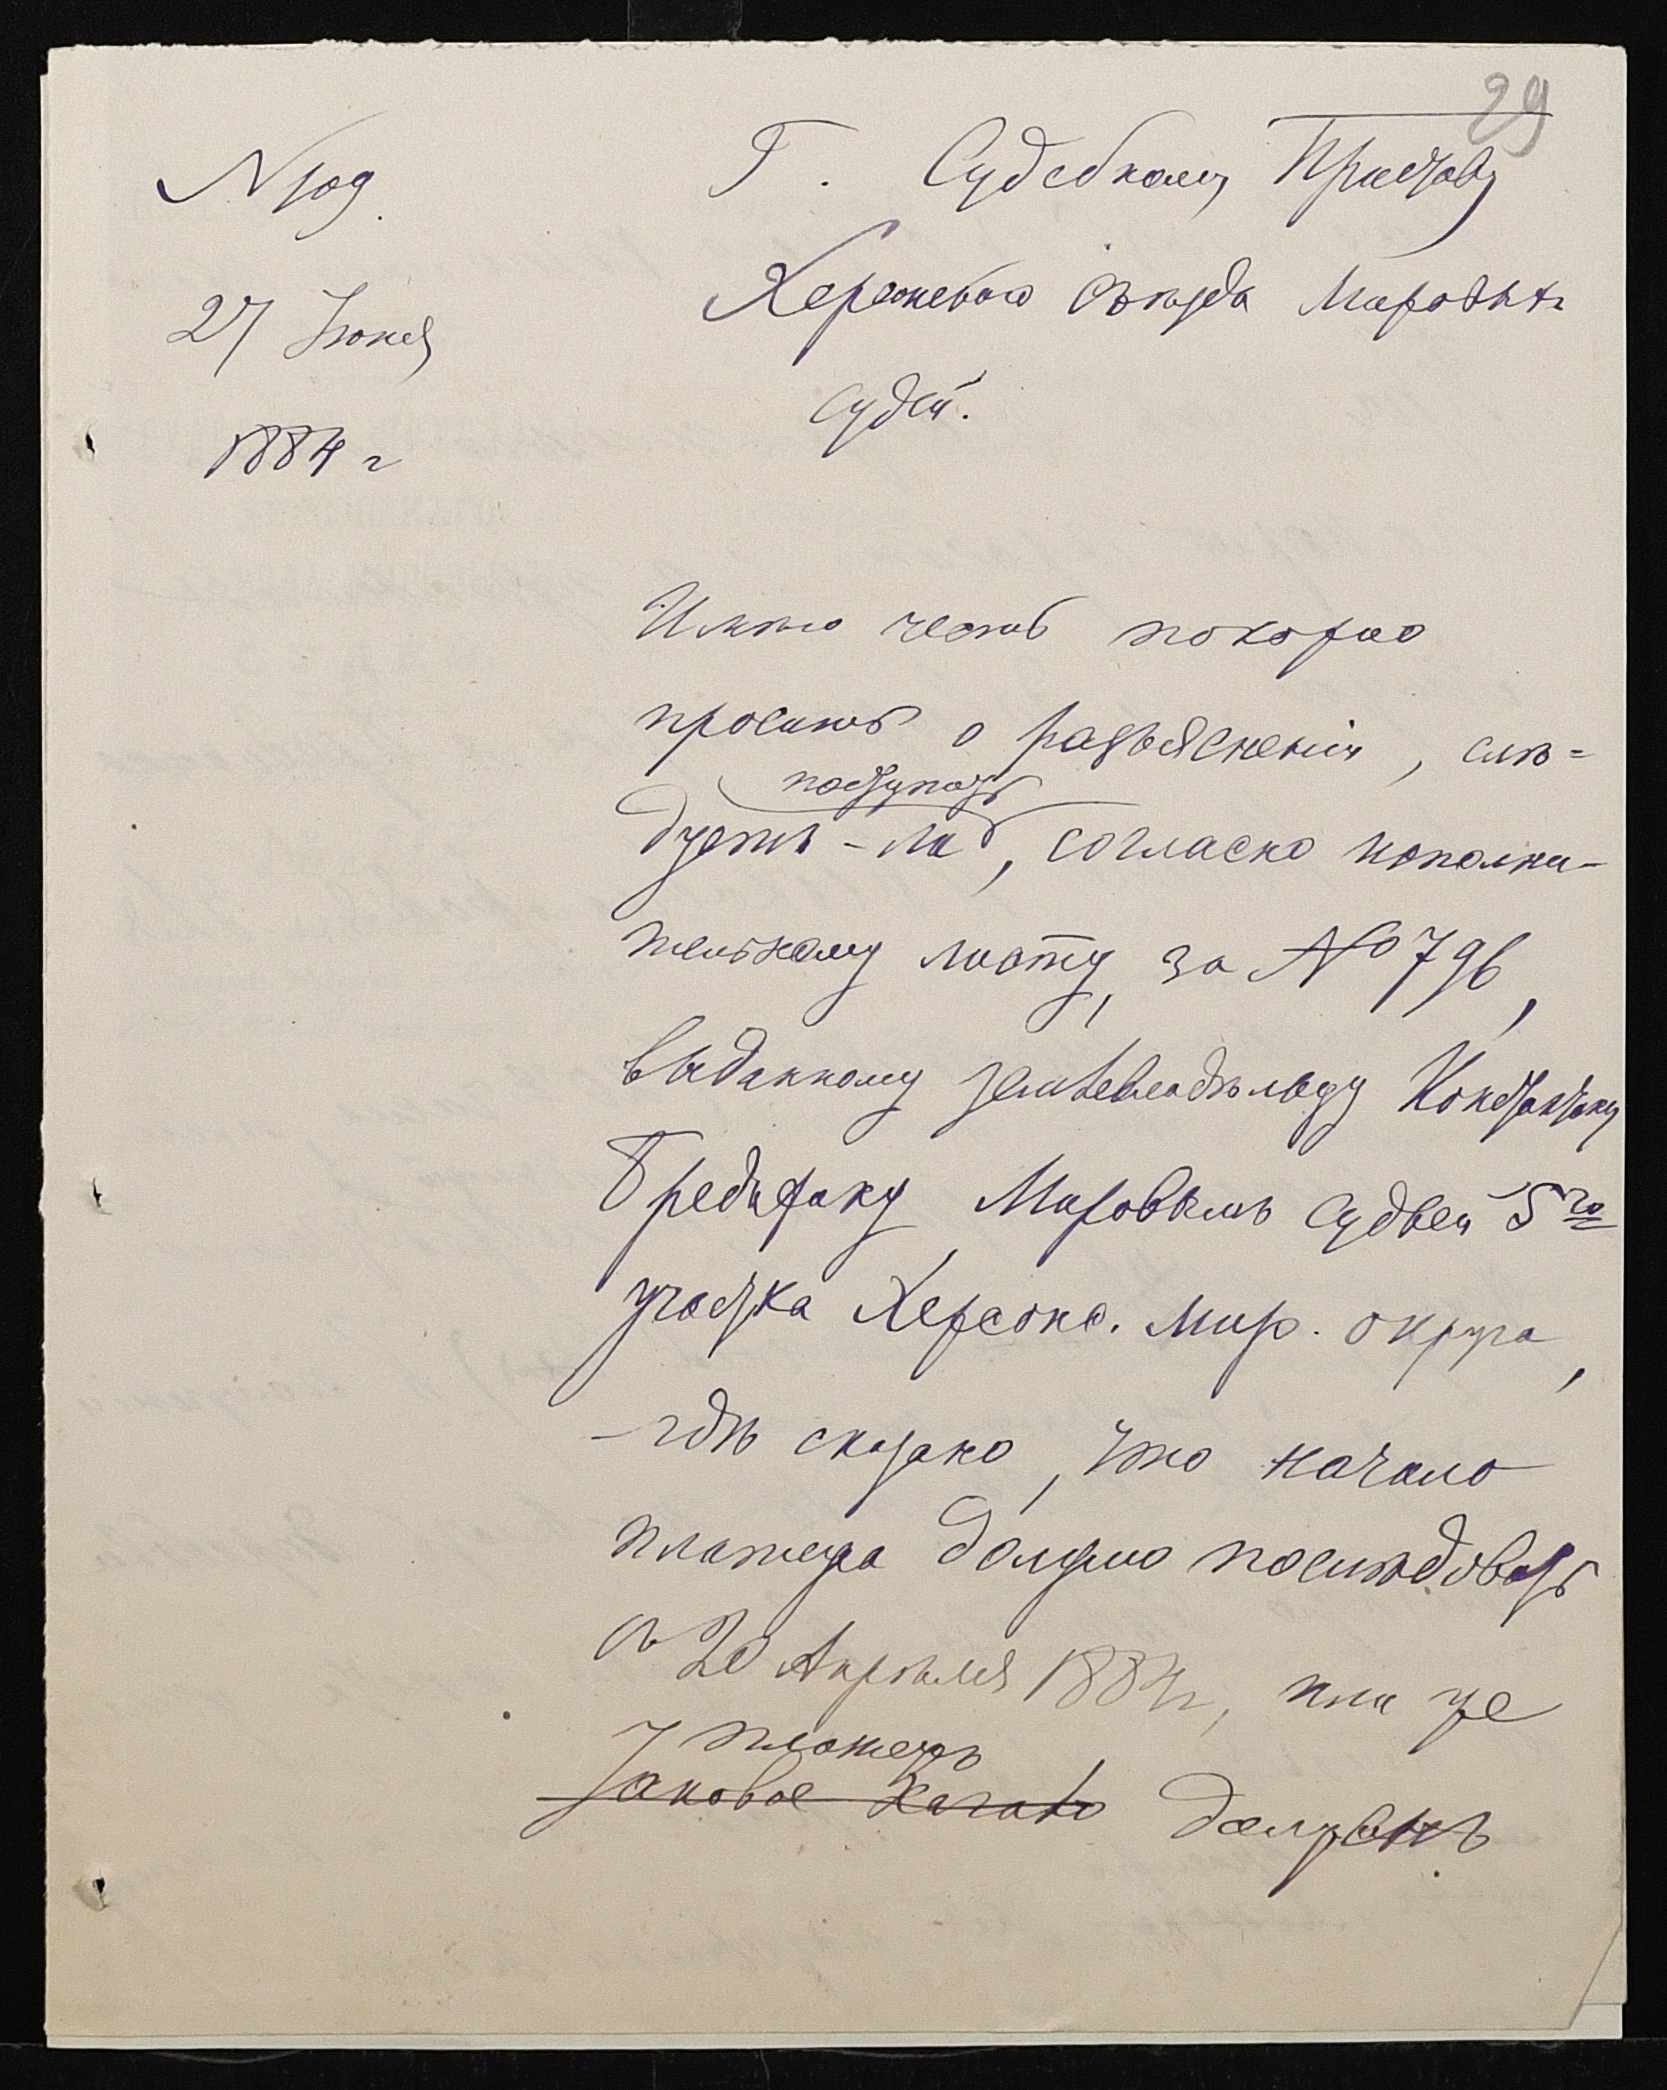 29
№ 109.
27 Іюня
1884 г
Г. Судебному Приставу
Херсонскаго съѣзда Мировыхъ
судей.
Имѣю честь покорно
просить о разъясненіи, слѣ=
поступать
дуетъ-ли, согласно исполни-
тельному листу, за № 796,
выданному землевладѣльцу Константину
Мировымъ Судьей 5го
участка Херсонс. мир. округа,
-гдѣ сказано, что начало
платежа должно послѣдовать
съ 20 Апрѣля 1884 г, или же
платежъ
таковое начато должен